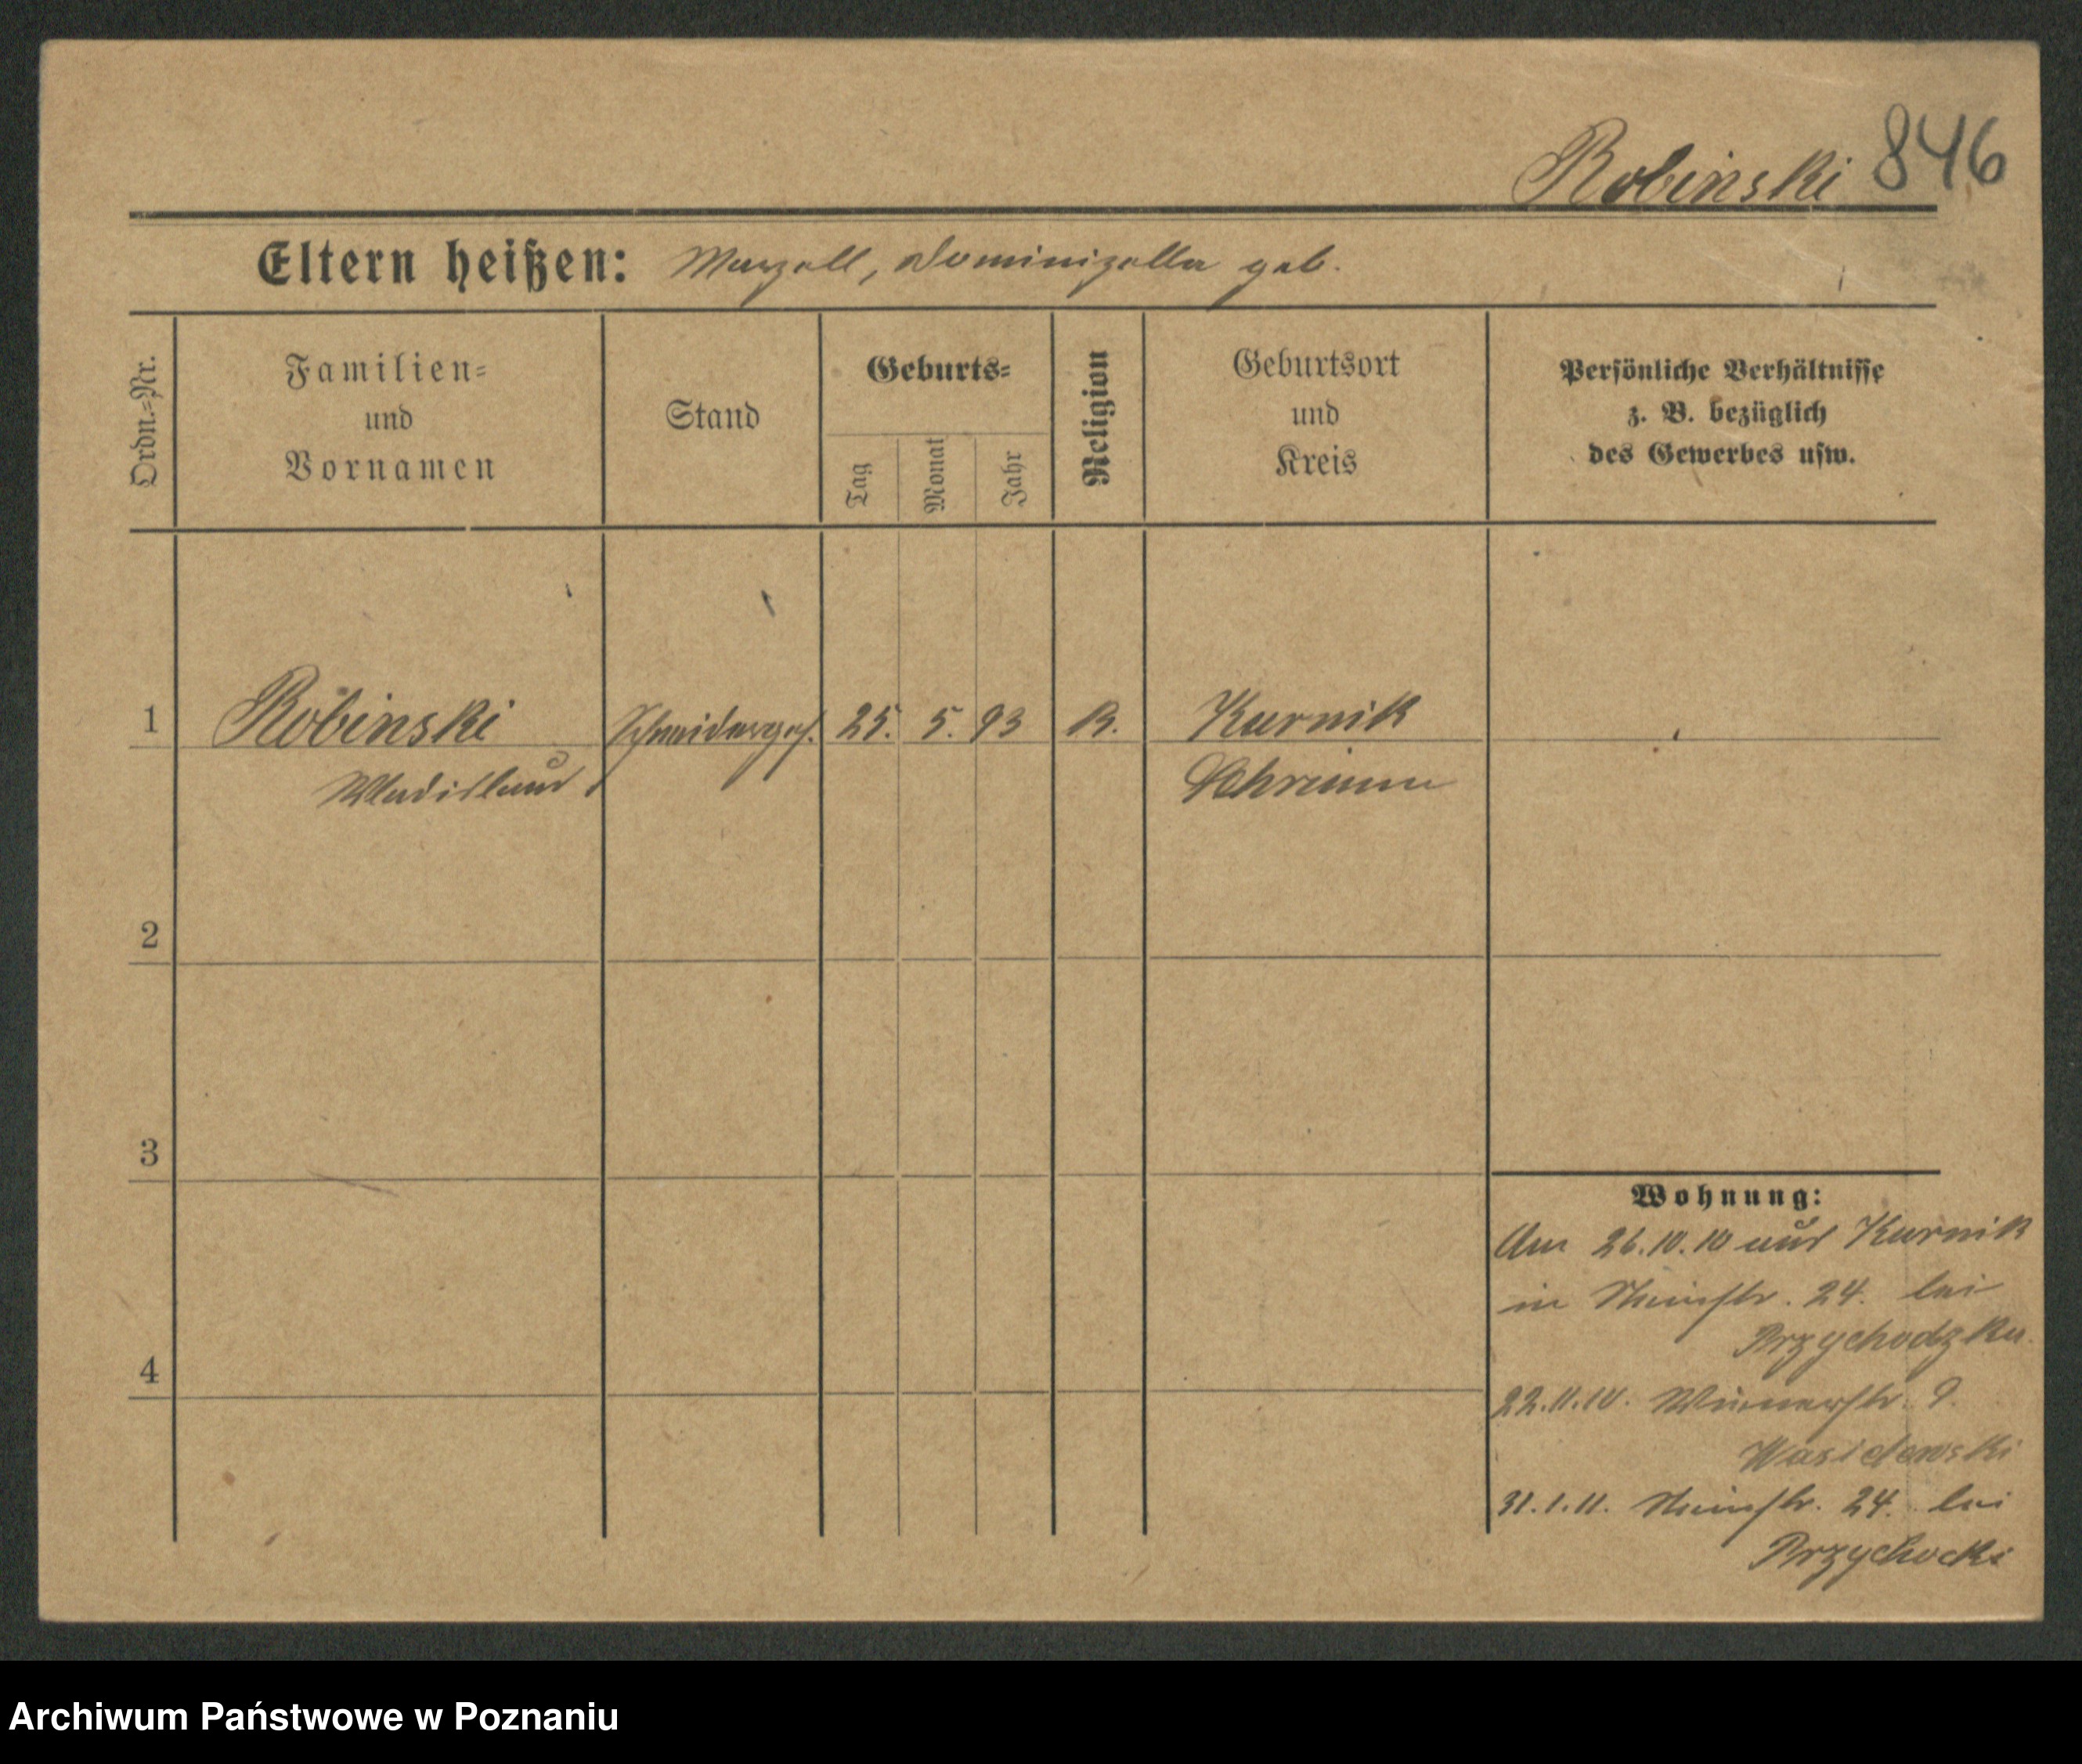 Robinski 846
Eltern heißen: Marzell, Dominizella geb.
Ordn.=Nr.
Familien=
und
Vornamen
Stand
Geburts=
Tag
Monat
Jahr
Religion
Geburtsort
und
Kreis
Persönliche Verhältnisse
z. B. bezüglich
des Gewerbes usw.
1 Robinski Schneiderges. 25. 5. 93 K. Kurnik
Wladislaus Schrimm
2
3
4
Wohnung:
Am 26.10.10 aus Kurnik
in 24. bei
Przychodzka.
22.11.10. 9.
31.1.11. 24. bei
Przychocki
Archiwum Państwowe w Poznaniu